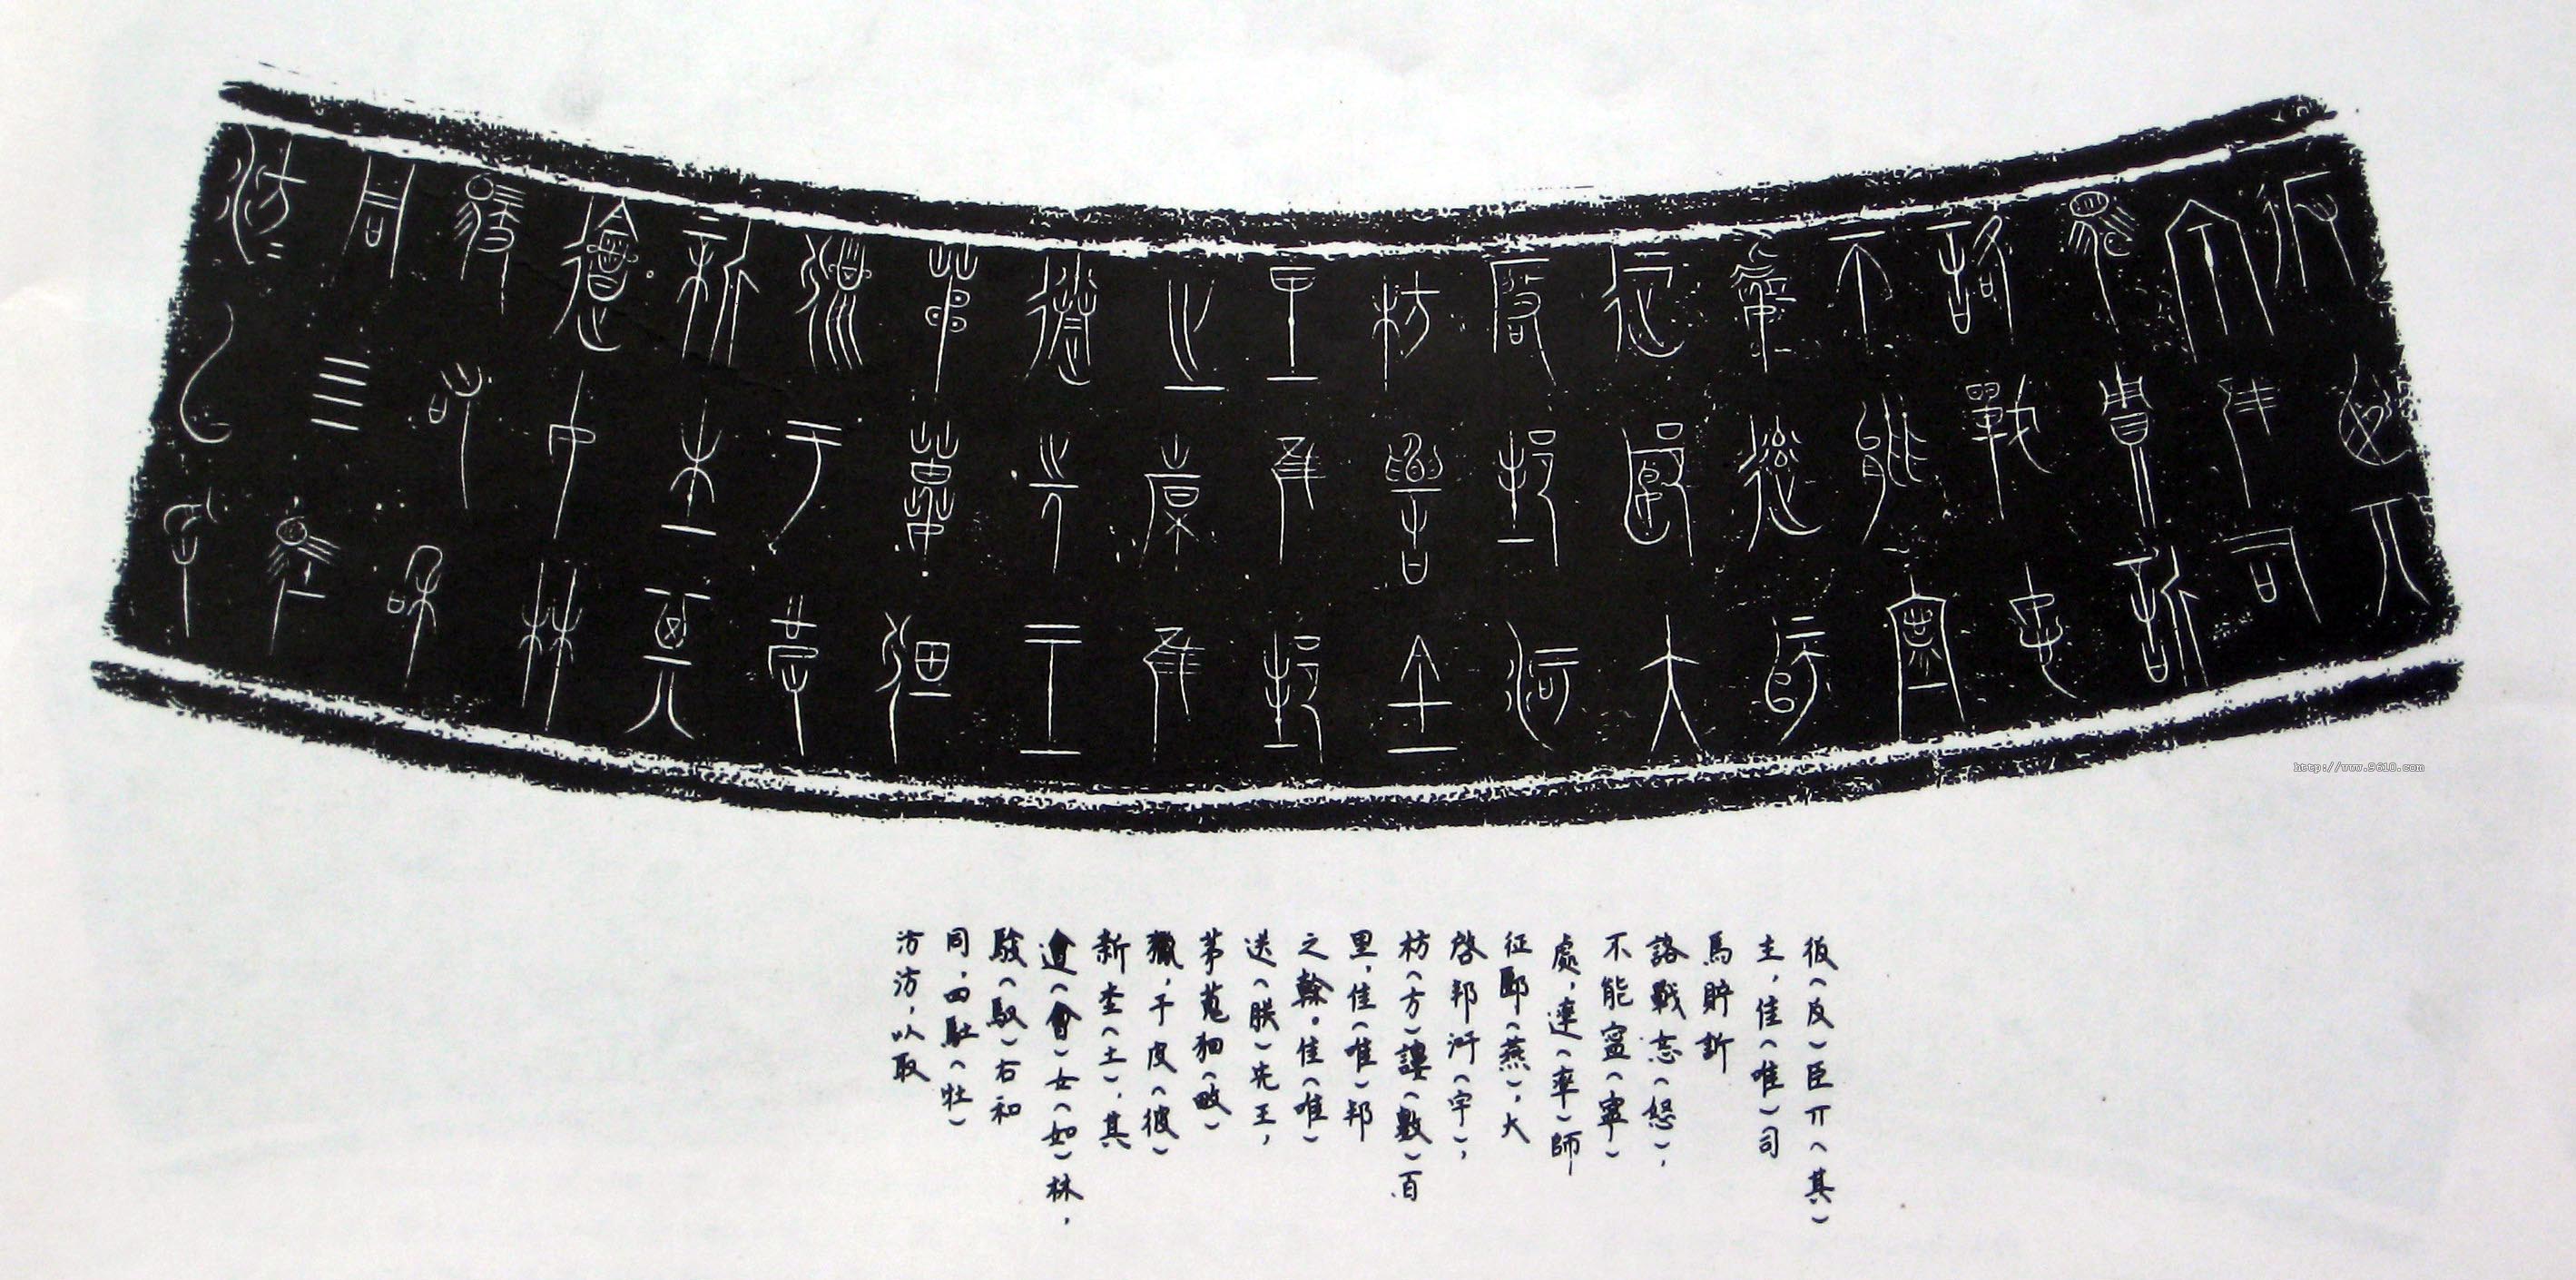 彶（反）臣丌（其）
主，隹（唯）司
馬賙訢
詻戰忢（怒），
不能寍（寧）
處，達（率）師
征郾（燕），大
啓邦㳔（宇），
枋（方）譻（數）百
里，隹（唯）邦
之榦。隹（唯）
送（朕）先王，
茅蒐狃（畋）
獵，于皮（彼）
新杢（土），其
遼（會）女（如）林，
駿（馭）右和
同，四駐（牡）
汸汸，以取
http://www.9610.com